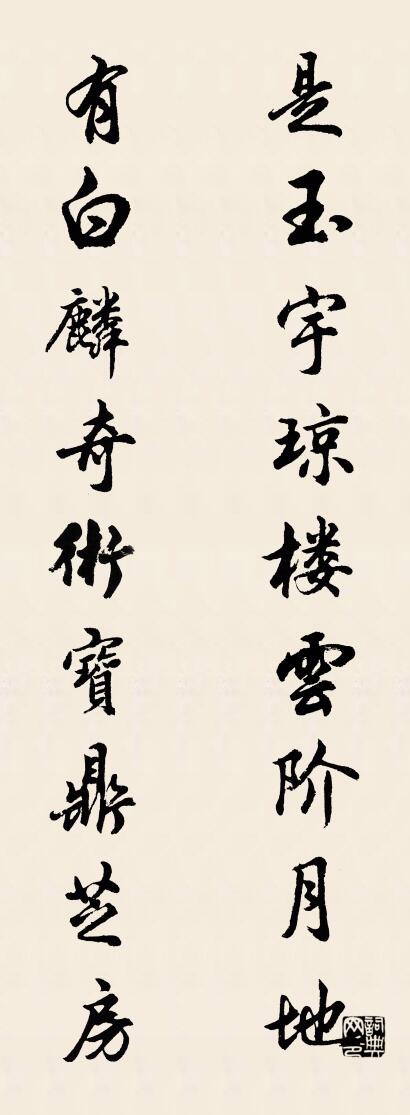 是玉宇琼楼雲阶月地
有白麟奇術寶鼎芝房